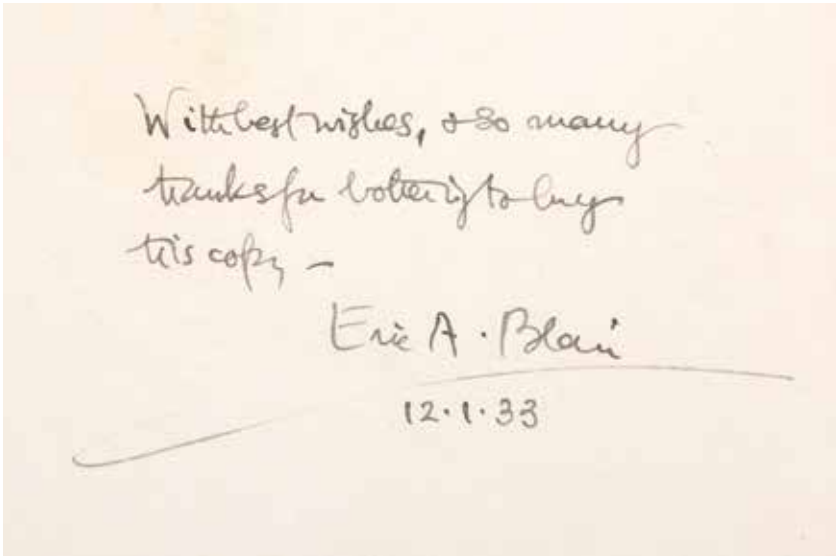 With best wishes, & so many
thanks for bothering to buy
this copy –
Eric A. Blair
12.1.33